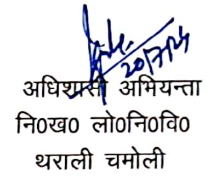 20/7/24
अधिशासी अभियन्ता
नि0ख0 लो0नि0वि0
थराली चमोली